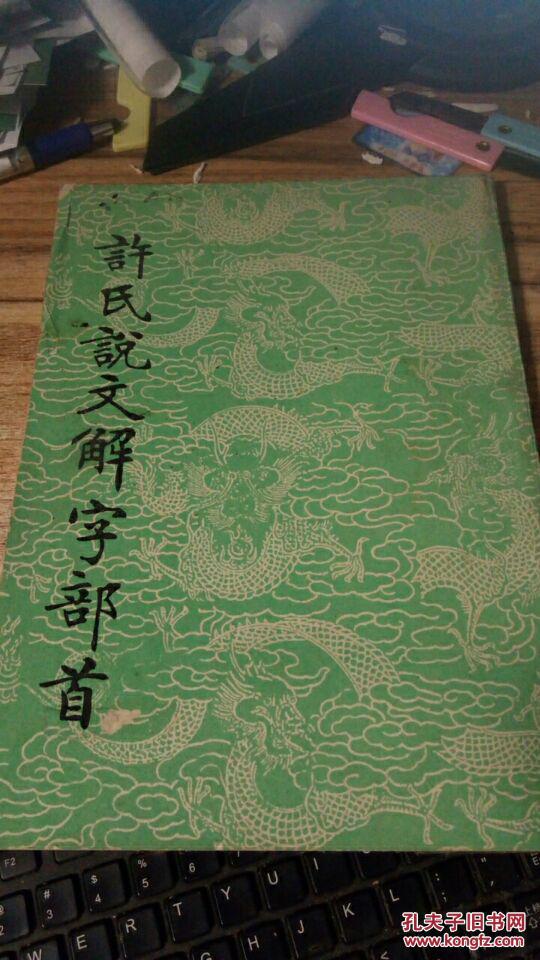 許氏說文解字部首
F2
# 3
$ 4
% 5
W E R T Y U I
S D F G H
孔夫子旧书网
www.kongfz.com